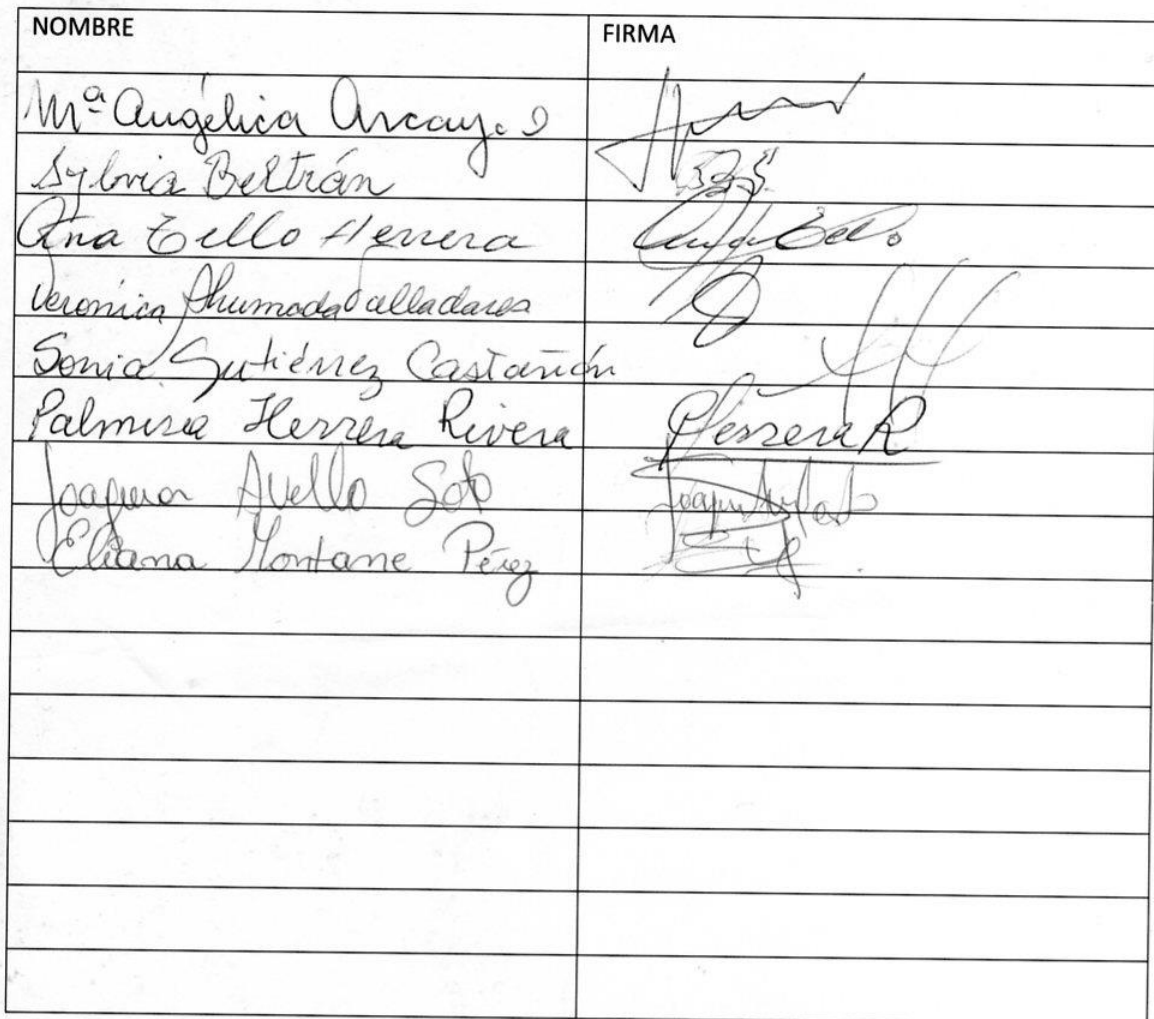 NOMBRE FIRMA
Mª Angélica Arcay. O
Sylvia Beltrán
Ana Tello Herrera Ana Tello
Veronica Ahumada Valladares
Sonia Gutiérrez Castañón
Palmira Herrera Rivera PHerrera R
Joaquina Avello Soto
Eliana Montane Pérez